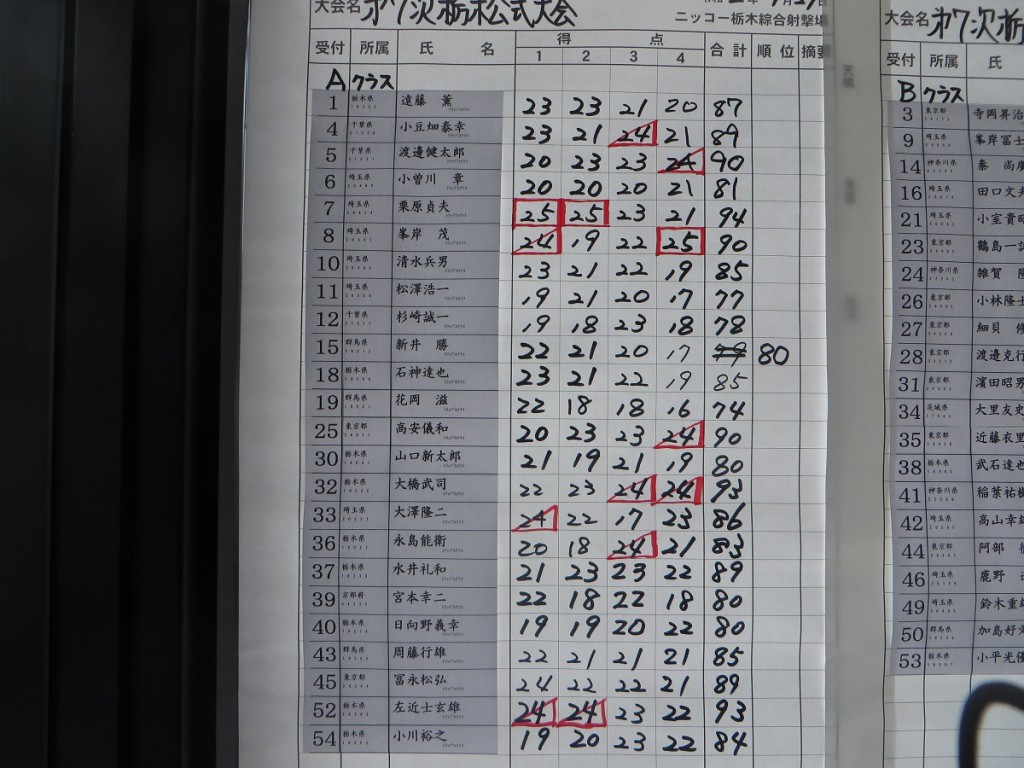 大会名 第7次栃木公式大会
ニッコー栃木綜合射撃場
受付 所属 氏 名 得 点 合計 順位 摘要
1 2 3 4
A クラス
1 栃木県 遠藤 薫 23 23 21 20 87
4 千葉県 小豆畑泰幸 23 21 24 21 89
5 千葉県 渡邊健太郎 20 23 23 24 90
6 埼玉県 小曽川 章 20 20 20 21 81
7 埼玉県 栗原貞夫 25 25 23 21 94
8 埼玉県 峯岸 茂 24 19 22 25 90
10 埼玉県 清水兵男 23 21 22 19 85
11 埼玉県 松澤浩一 19 21 20 17 77
12 千葉県 杉崎誠一 19 18 23 18 78
15 群馬県 新井 勝 22 21 20 17 79 80
18 栃木県 石神達也 23 21 22 19 85
19 群馬県 花岡 滋 22 18 18 16 74
25 東京都 高安儀和 20 23 23 24 90
30 栃木県 山口新太郎 21 19 21 19 80
32 栃木県 大橋武司 22 23 24 24 93
33 埼玉県 大澤隆二 24 22 17 23 86
36 栃木県 永島能衛 20 18 24 21 83
37 栃木県 水井礼和 21 23 23 22 89
39 京都府 宮本幸二 22 18 22 18 80
40 栃木県 日向野義幸 19 19 20 22 80
43 群馬県 周藤行雄 22 21 21 21 85
45 東京都 冨永松弘 24 22 22 21 89
52 栃木県 左近士玄雄 24 24 23 22 93
54 栃木県 小川裕之 19 20 23 22 84
大会名 第7次栃
受付 所属 氏
B クラス
3 東京都 寺岡昇治
9 埼玉県 峯岸冨士
14 神奈川県 秦 尚
16 埼玉県 田口文
21 埼玉県 小室貴
23 東京都 鶴島一
24 神奈川県 雑賀
26 東京都 小林隆
27 東京都 細貝
28 東京都 渡邉克行
31 東京都 濱田昭男
34 茨城県 大里友史
35 東京都 近藤衣里
38 栃木県 武石達也
41 神奈川県 稲葉祐樹
42 埼玉県 高山幸雄
44 東京都 阿部
46 埼玉県 鹿野
49 埼玉県 鈴木重
50 群馬県 加島好
53 栃木県 小平光優